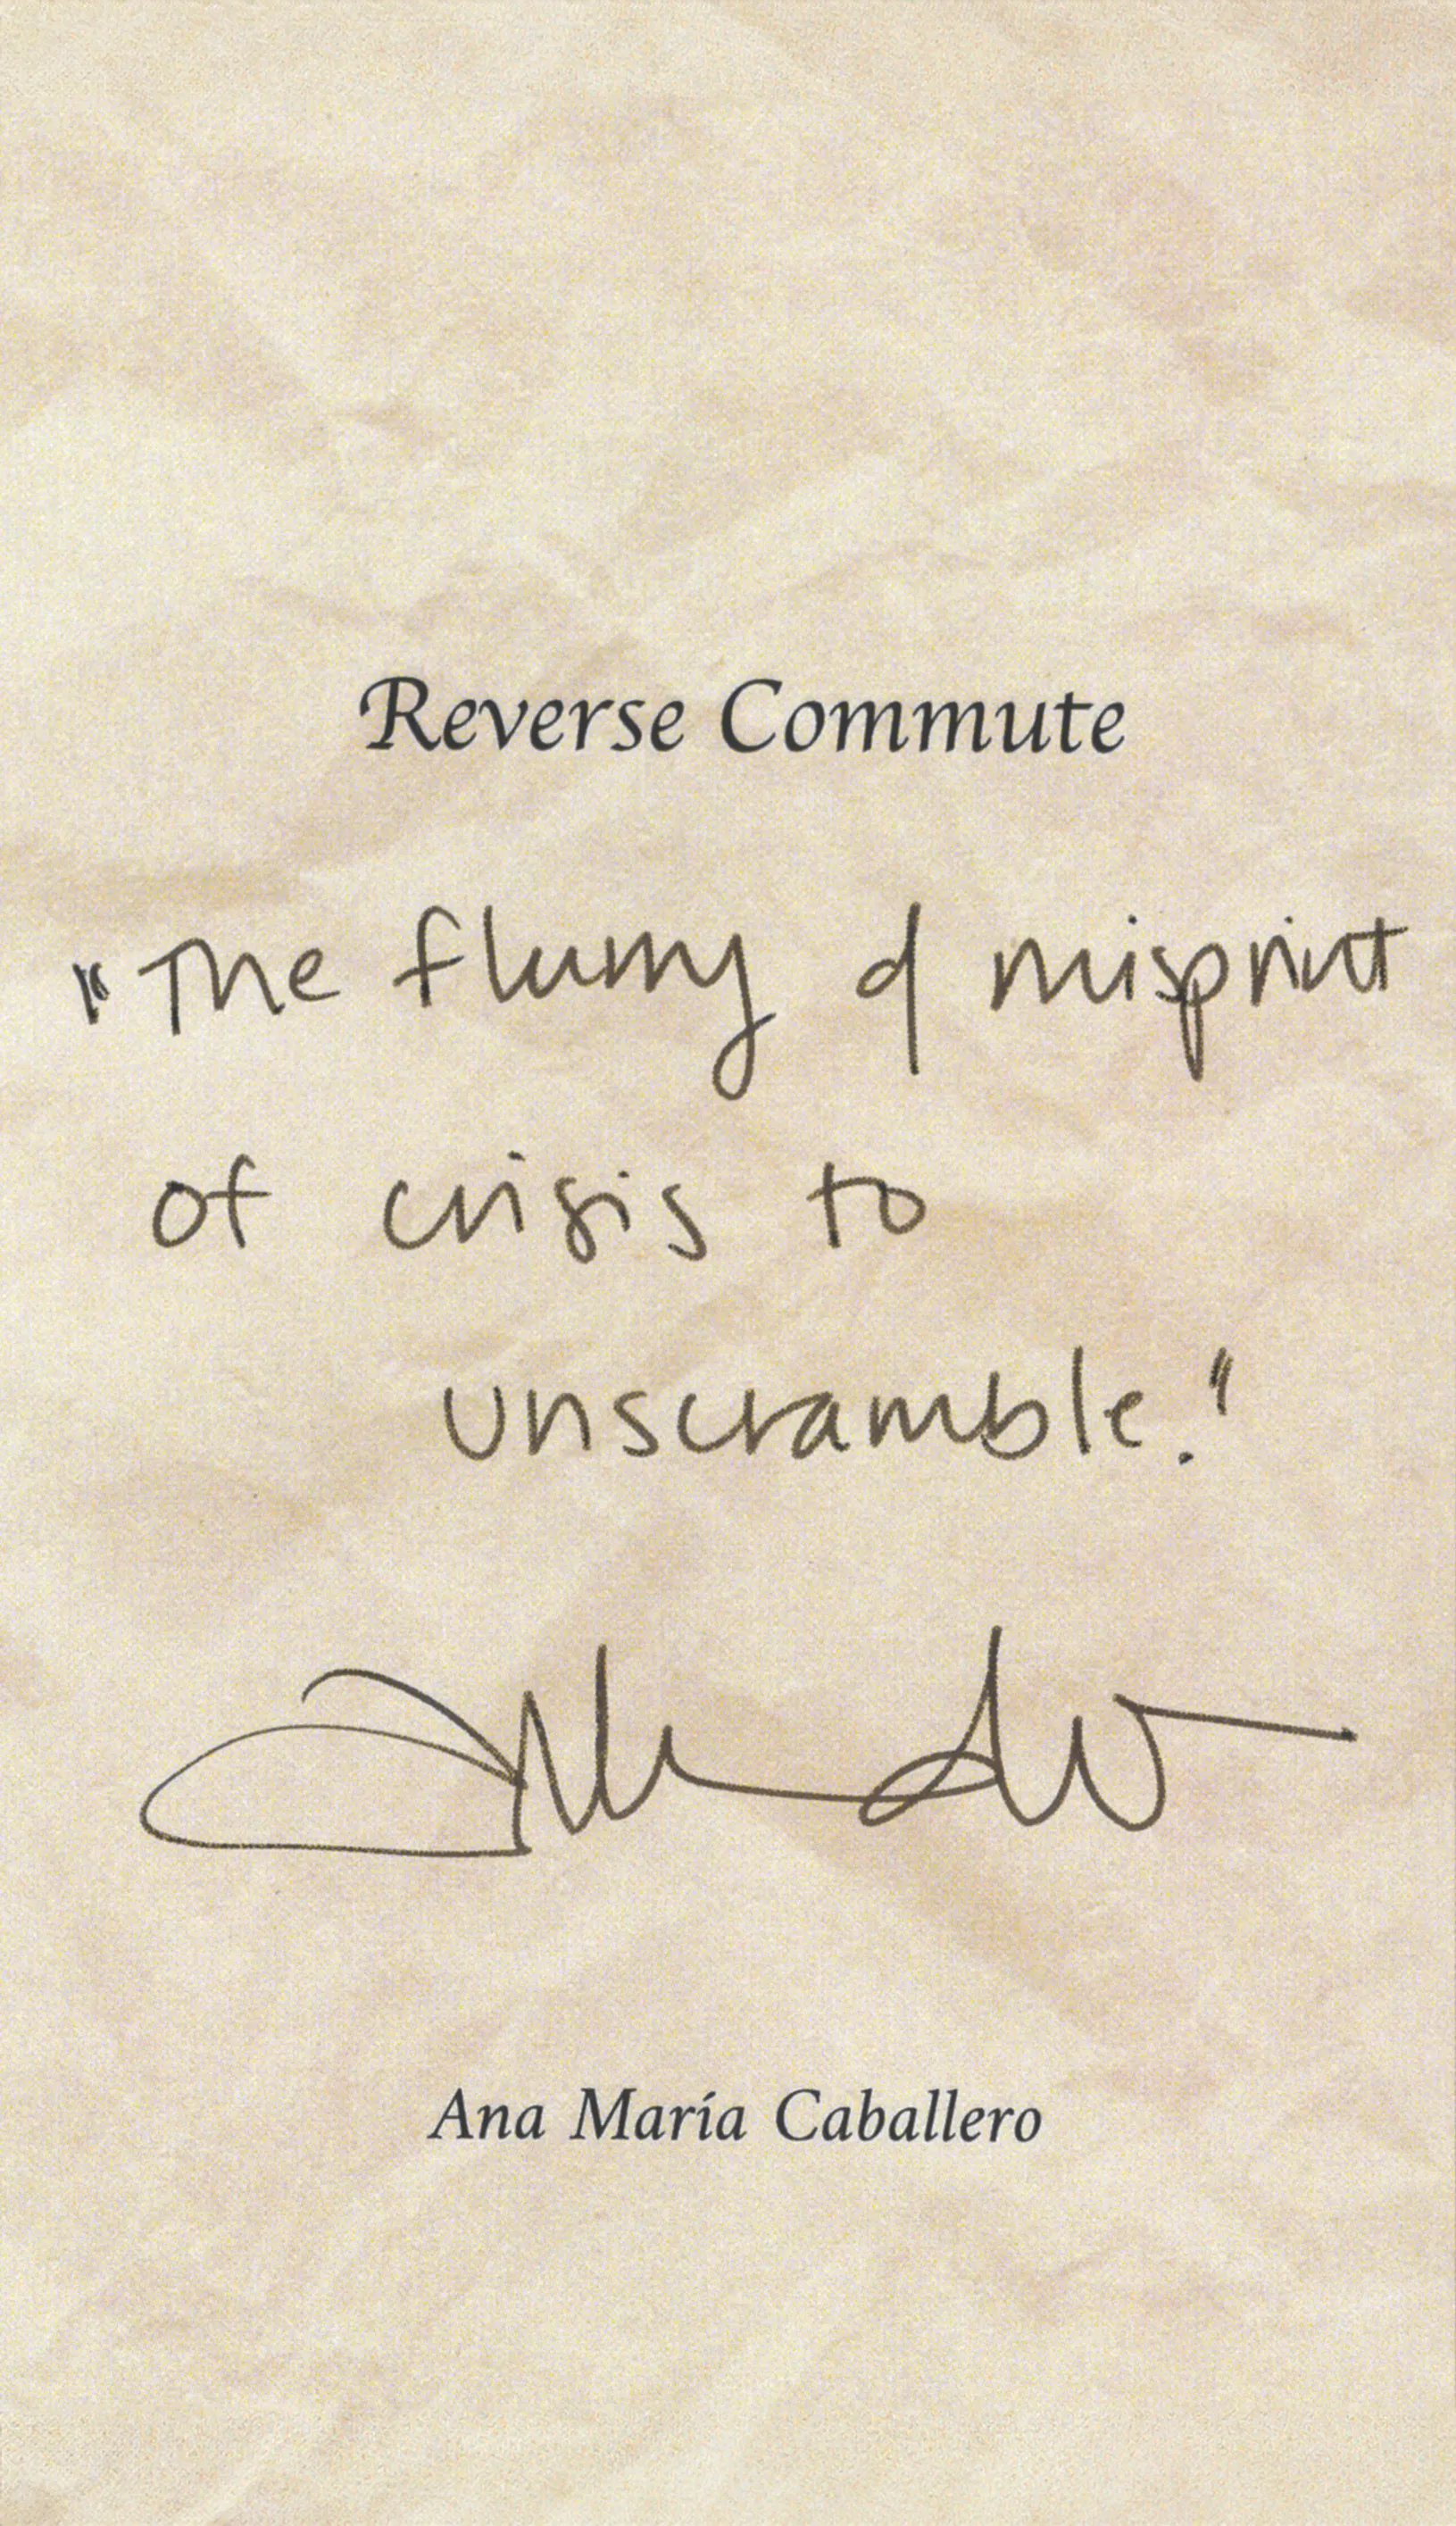 Reverse Commute
"The flurry of misprint
of crisis to
unscramble."
Ana María Caballero